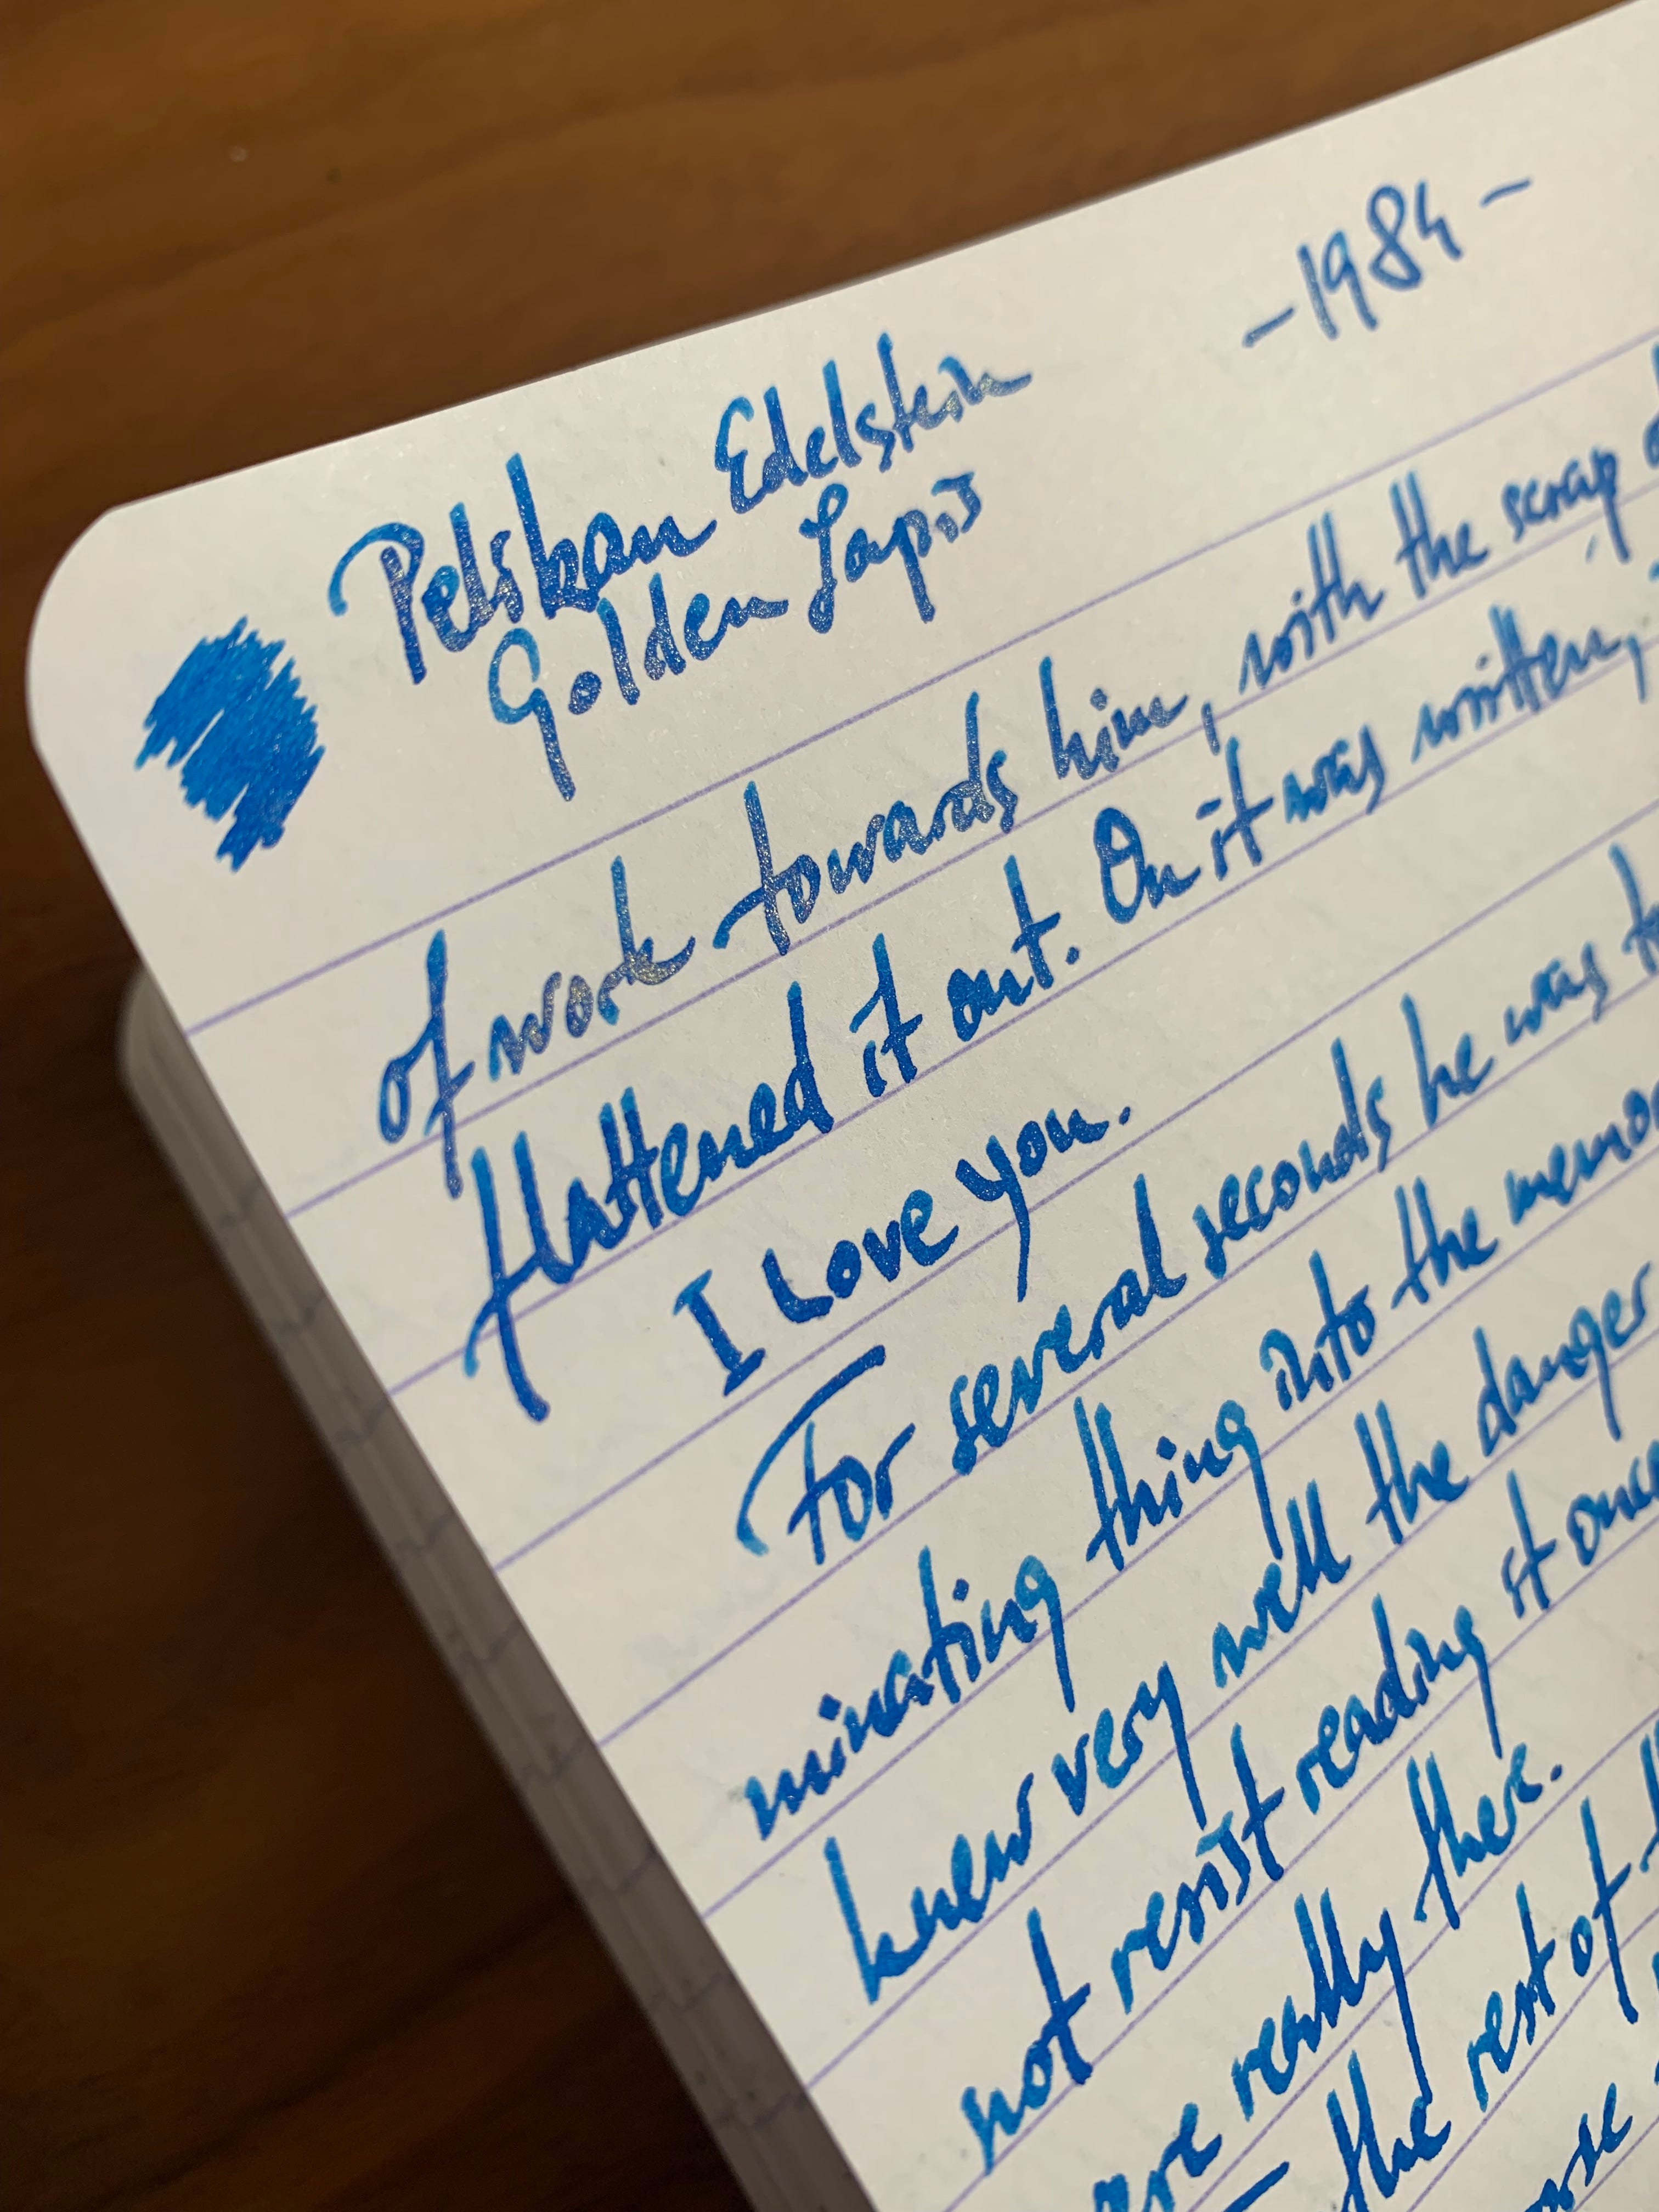 - 1984 -
Pelikan Edelstein
Golden Lapis
of work towards him, with the scrap
flattened it out. On it was written,
I Love you.
For several seconds he was
minating thing into the
knew very well the danger
not resist reading it
are really there.
the rest of